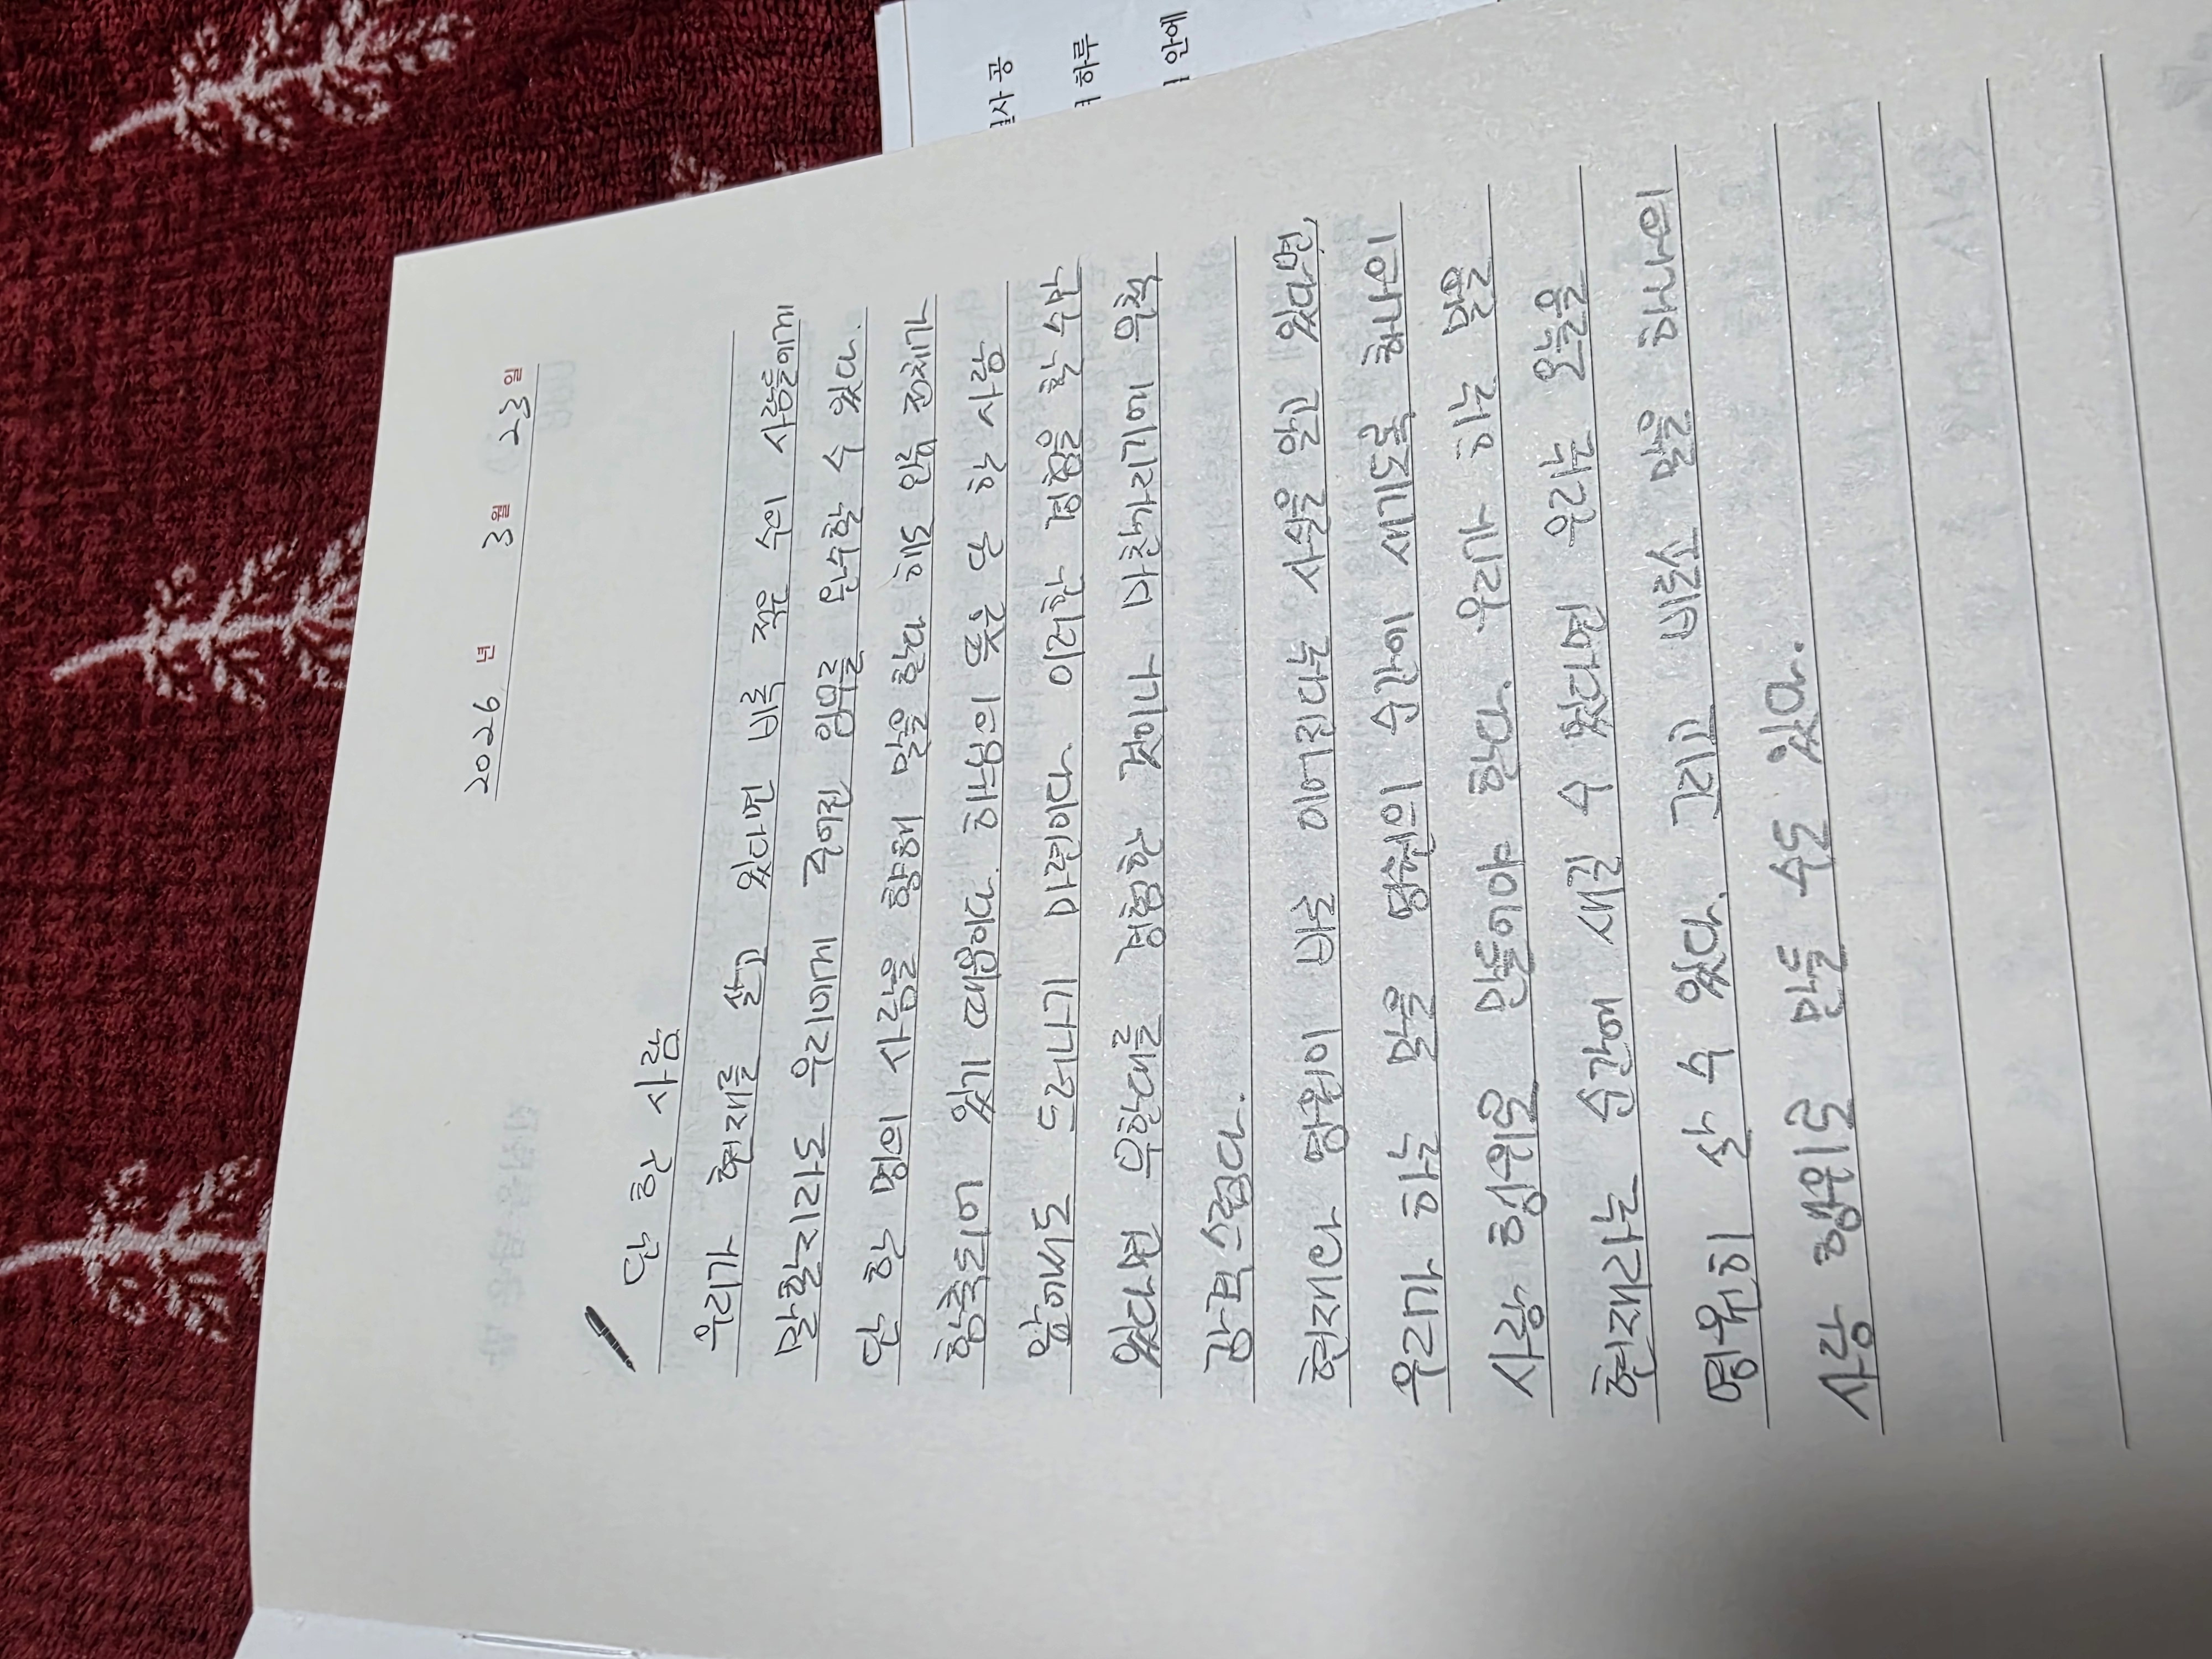 2026 년 3 월 23 일
단 한 사람
우리가 현재를 살고 있다면 비록 적은 수의 사람들에게
말할지라도 우리에게 주어진 임무를 완수할 수 있다.
단 한 명의 사람을 향해 말을 한다 해도 인류 전체가
함축되어 있기 때문이다. 하나님의 뜻은 단 한 사람
앞에서도 드러나기 마련이다. 이러한 경험을 할 수만
있다면 무한대를 경험한 것이며 다른사람이에게 무척
감격스럽다.
현재란 영원이 바로 이어진다는 사실을 알고 있다면,
우리가 하는 말을 영속의 순간이 새겨지도록해야한다
사랑 행위를 만들어야 한다. 우리가 하는 말을
현재라는 순간에 새길 수 있다면 우리는 오늘을
영원히 살 수 있다. 그리고 비로소 말을 하면서
사랑 행위를 만들 수도 있다.
일사 공
며 하루
안에